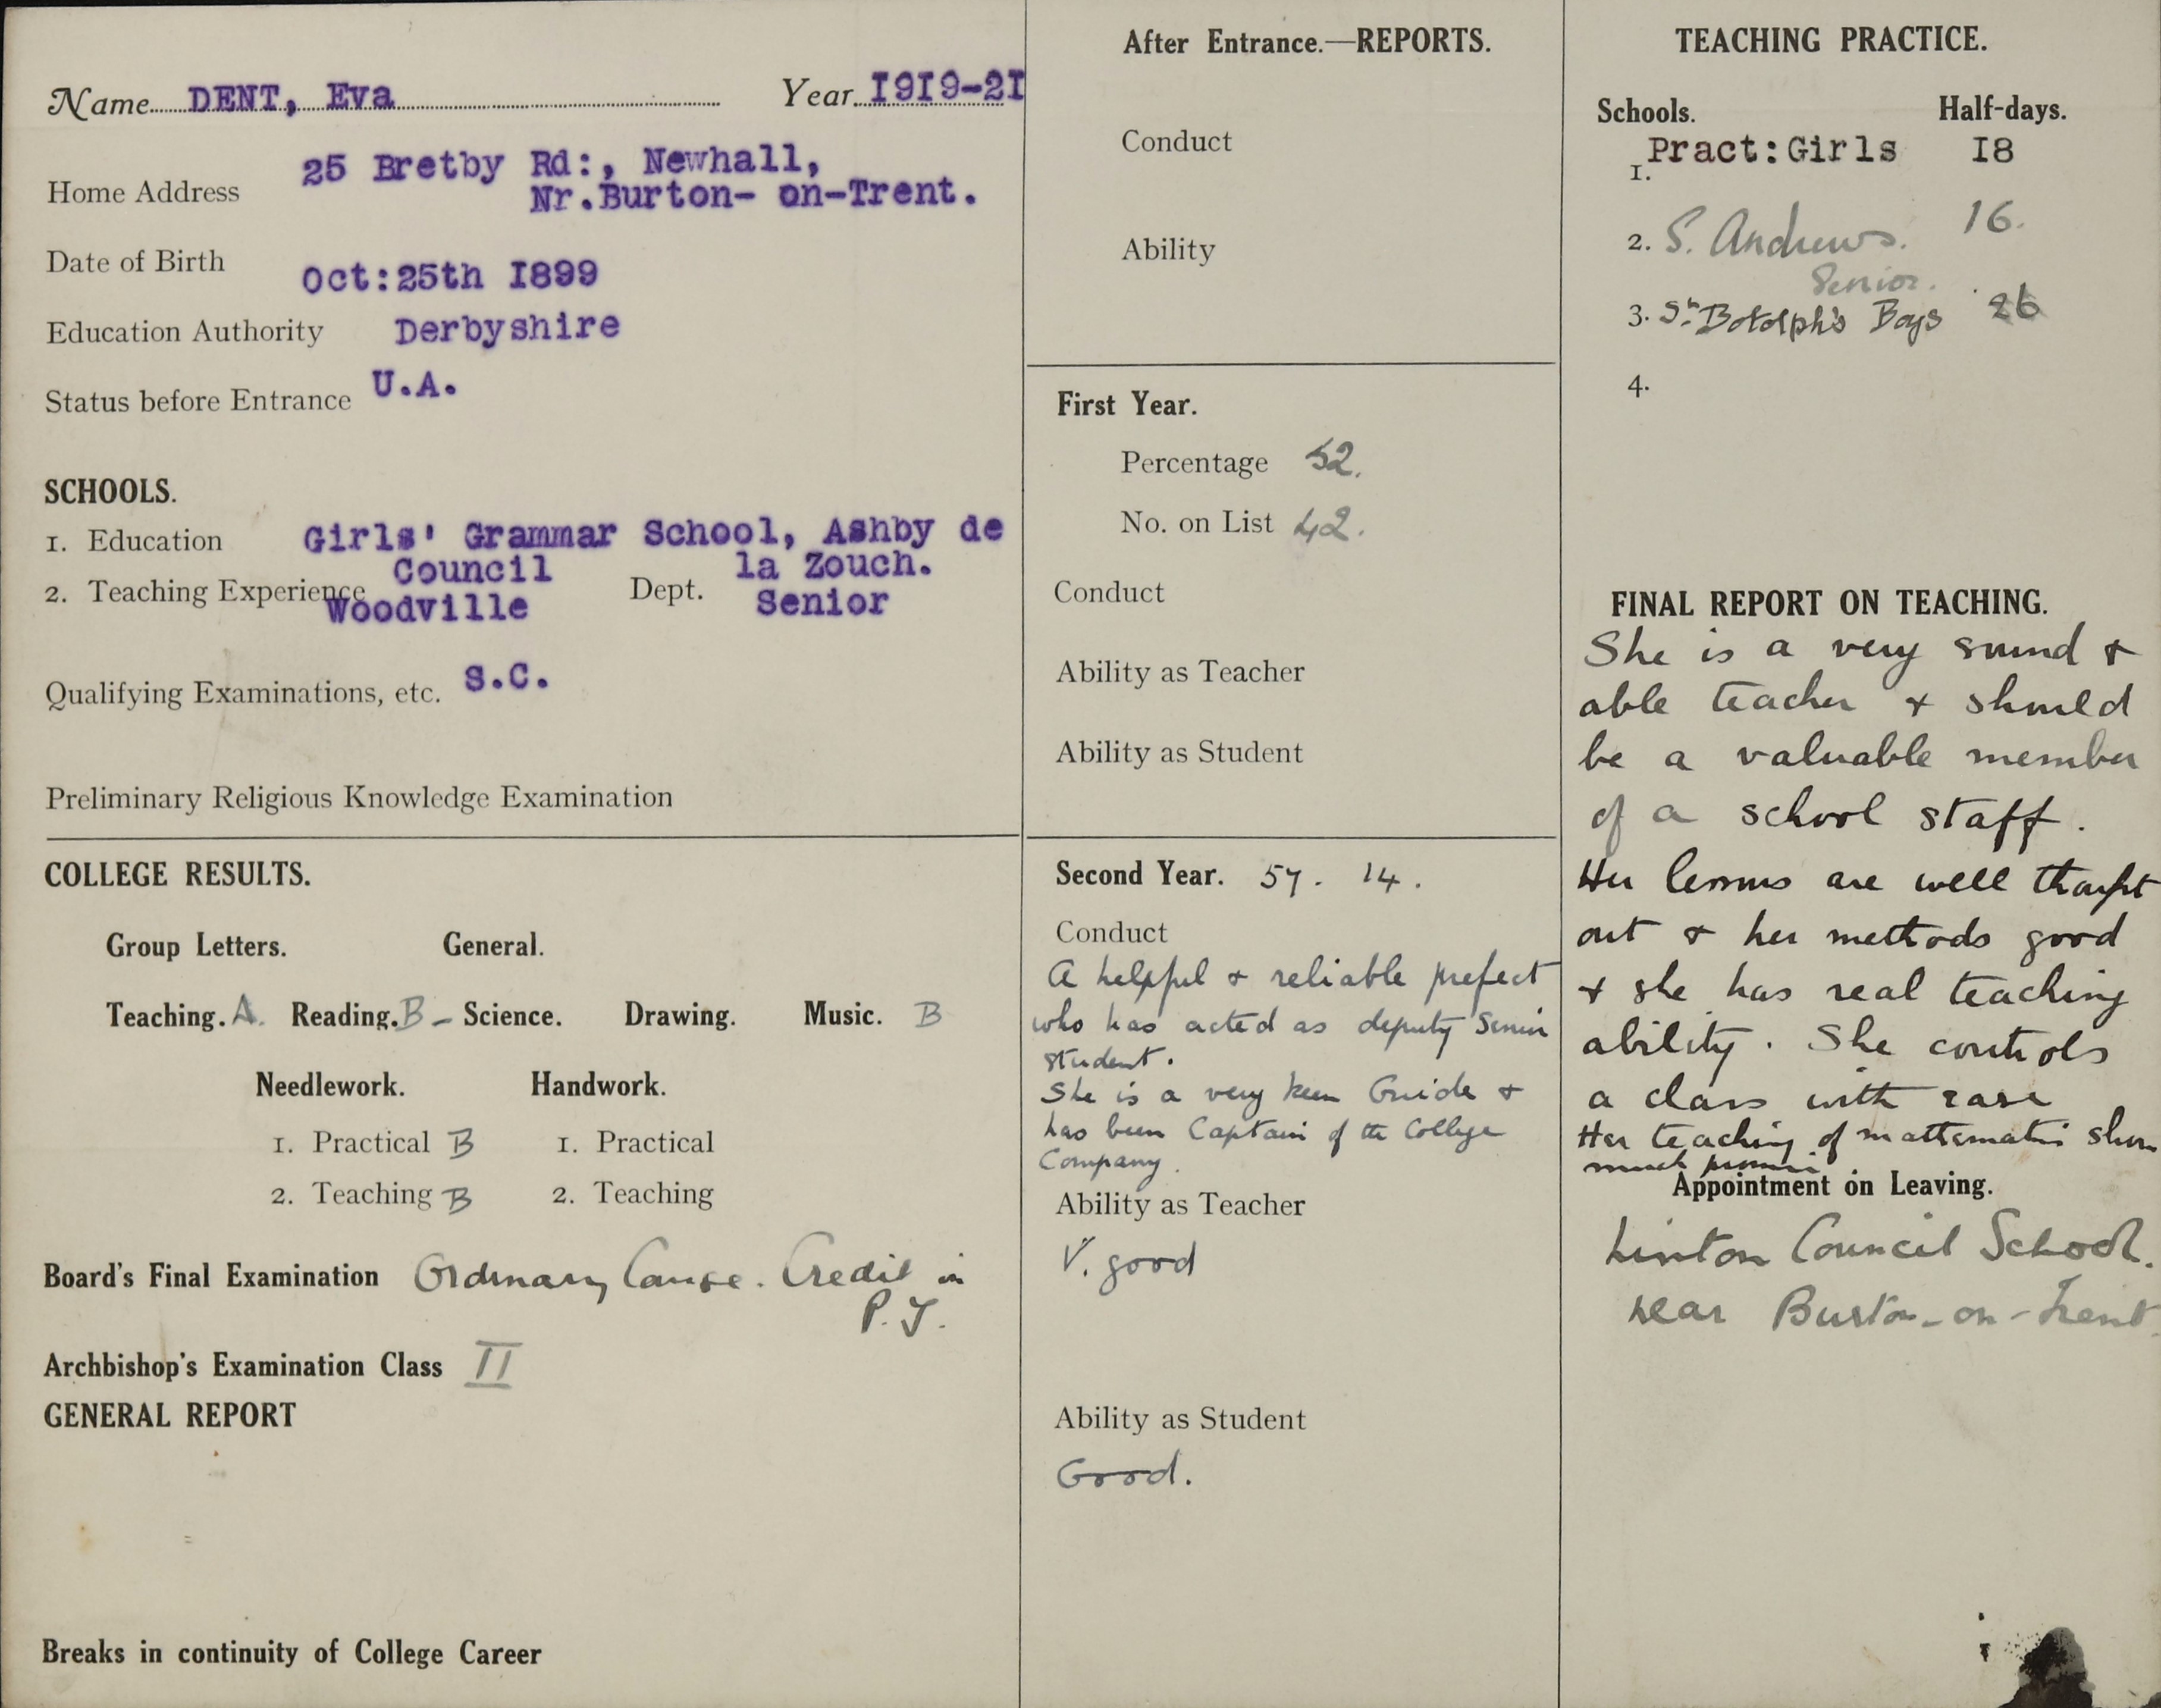 Name DENT, Eva Year 1919-21
Home Address 25 Bretby Rd:, Newhall,
Nr.Burton- on-Trent.
Date of Birth Oct:25th 1899
Education Authority Derbyshire
Status before Entrance U.A.
SCHOOLS.
1. Education Girls' Grammar School, Ashby de
la Zouch.
2. Teaching Experience Council
Woodville Dept. Senior
Qualifying Examinations, etc. S.C.
Preliminary Religious Knowledge Examination
COLLEGE RESULTS.
Group Letters. General.
Teaching. A. Reading. B- Science. Drawing. Music. B
Needlework. Handwork.
1. Practical B 1. Practical
2. Teaching B 2. Teaching
Board's Final Examination Ordinary Course. Credit in
P.T.
Archbishop's Examination Class II
GENERAL REPORT
Breaks in continuity of College Career
After Entrance.—REPORTS.
Conduct
Ability
First Year.
Percentage 52.
No. on List 42.
Conduct
Ability as Teacher
Ability as Student
Second Year. 57. 14.
Conduct
A helpful & reliable prefect
who has acted as deputy Senior
Student.
She is a very keen Guide &
has been Captain of the College
Company.
Ability as Teacher
V. good
Ability as Student
Good.
TEACHING PRACTICE.
Schools. Half-days.
1. Pract:Girls 18
2. S. Andrews. 16.
Senior.
3. St Botolph's Boys 26
4.
FINAL REPORT ON TEACHING.
She is a very sound &
able teacher & should
be a valuable member
of a school staff.
Her lessons are well thought
out & her methods good
& she has real teaching
ability. She controls
a class with ease
Her teaching of mathematics shows
much promise
Appointment on Leaving.
Linton Council School.
near Burton-on-Trent.